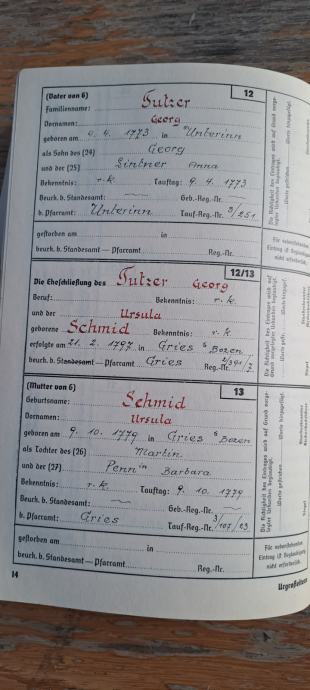 (Vater von 6) 12
Familienname: Tutzer
Vornamen: Georg
geboren am 9. 4. 1773 in Unterinn
als Sohn des (24) Georg
und der (25) Lintner Anna
Bekenntnis: r.k. Tauftag: 9. 4. 1773
Beurk. b. Standesamt: Geb.-Reg.-Nr.
b. Pfarramt: Unterinn Tauf-Reg.-Nr. 3/251
gestorben am in
beurk. b. Standesamt — Pfarramt Reg.-Nr.
Für nebenstehenden
Eintrag ist Beglaubigung
nicht erforderlich.
12/13
Die Eheschließung des Tutzer Georg
Beruf: Bekenntnis: r. k.
und der Ursula
geborene Schmid Bekenntnis: r. k.
erfolgte am 21. 2. 1797 in Gries b Bozen
beurk. b. Standesamt — Pfarramt Gries Reg.-Nr.
(Mutter von 6) 13
Geburtsname: Schmid
Vornamen: Ursula
geboren am 9. 10. 1779 in Gries b Bozen
als Tochter des (26) Martin
und der (27) Penn in Barbara
Bekenntnis: r. k. Tauftag: 9. 10. 1779
Beurk. b. Standesamt: Geb.-Reg.-Nr.
b. Pfarramt: Gries Tauf-Reg.-Nr. 3/107/13
gestorben am in
beurk. b. Standesamt — Pfarramt Reg.-Nr.
Für nebenstehenden
Eintrag ist Beglaubigung
nicht erforderlich.
14
Urgroßeltern